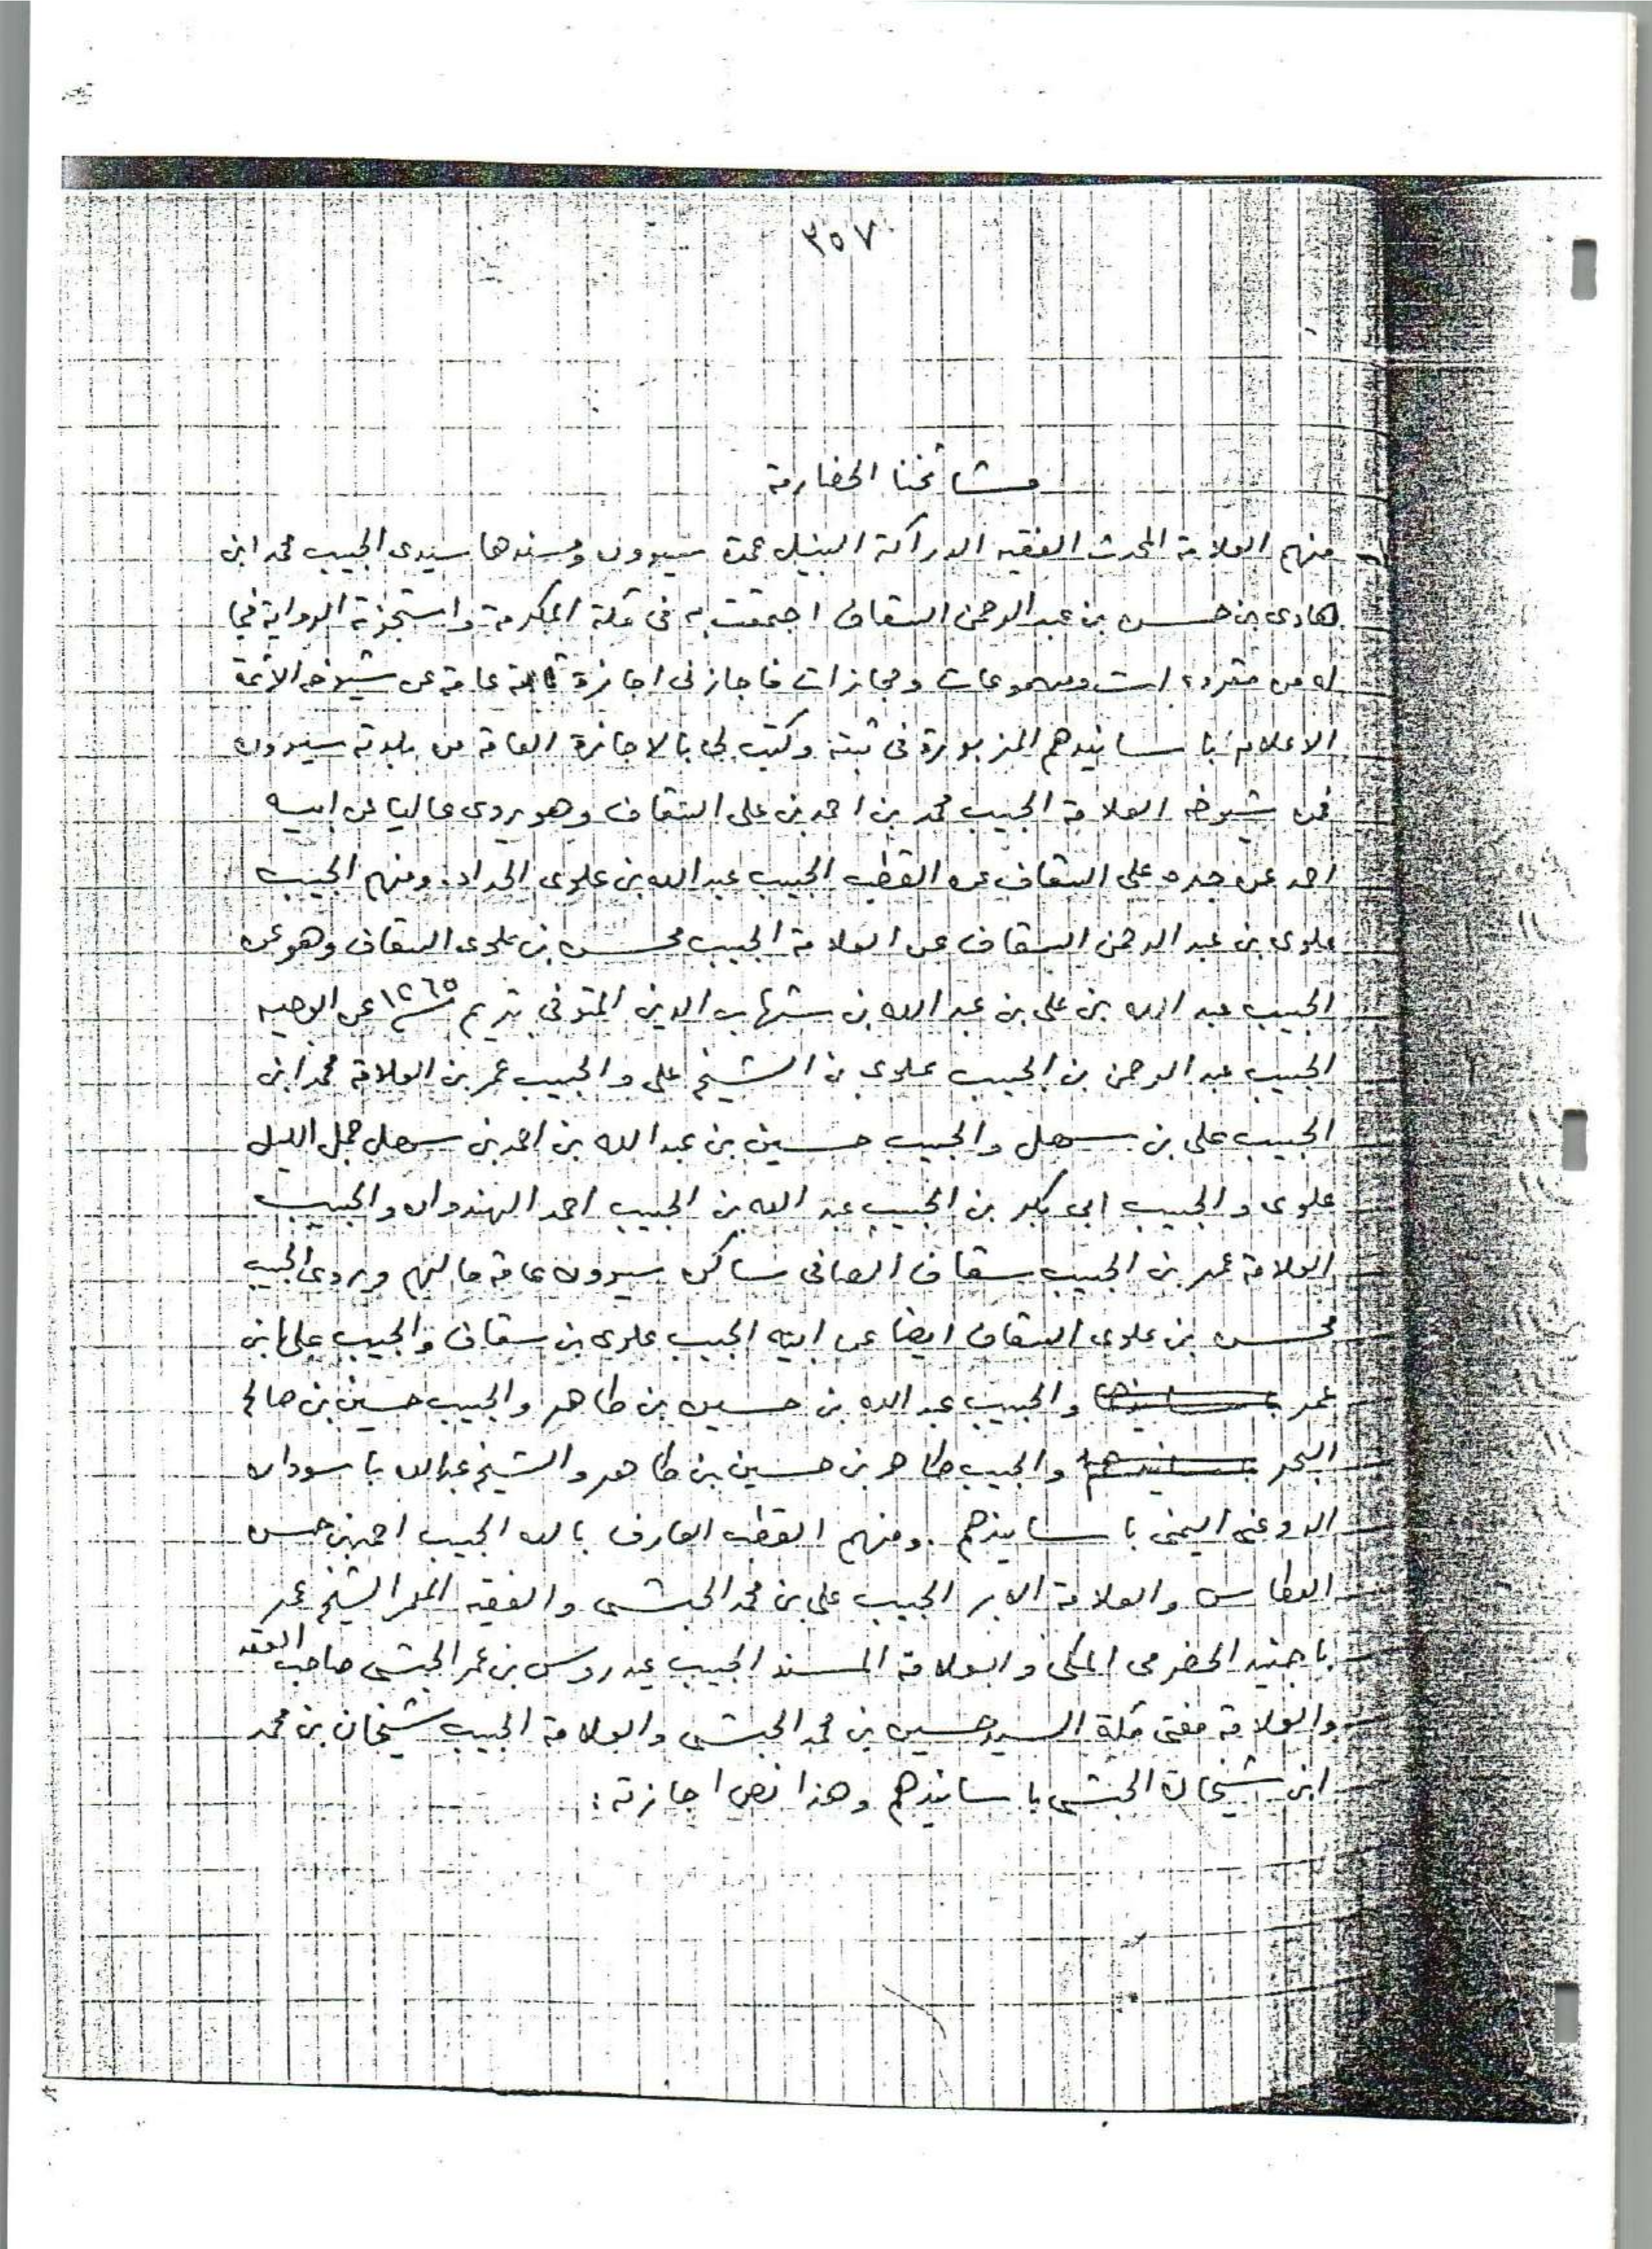 ٣٥٧
مشائخنا الحضارمة
منهم العلامة المحدث الفقيه الدراكة النبيل عمدة سيوون ومسندها سيدى الحبيب محمد ابن
هادى بن حسن بن عبد الرحمن السقاف اجتمعت به فى مكة المكرمة واستجزته الرواية فيما
له من مقروءات ومسموعات ومجازات فاجازنى اجازة عامة عن شيوخه الائمة
الاعلام با سانيدهم المزبورة فى ثبته وكتب لى بالاجازة العامة من بلدته سيوون
فمن شيوخه العلامة الحبيب محمد بن احمد بن على السقاف وهو يروى عاليا عن ابيه
احمد عن جده على السقاف عن القطب الحبيب عبد الله بن علوى الحداد. ومنهم الحبيب
علوى بن عبد الرحمن السقاف عن العلامة الحبيب محسن بن علوى السقاف وهو عن
الحبيب عبد الله بن على بن عبد الله بن شهاب الدين المتوفى بتريم ١٢٦٥ عن الوجيه
الحبيب عبد الرحمن بن الحبيب علوى بن الشيخ على والحبيب عمر بن العلامة محمد ابن
الحبيب على بن سهل والحبيب حسين بن عبد الله بن احمد بن سهل جمل الليل
علوى والحبيب ابى بكر بن الحبيب عبد الله بن الحبيب احمد الهندوان والحبيب
العلامة عمر بن الحبيب سقاف الصافى ساكن سيوون عامة مالهم ويروى الحبيب
محسن بن علوى السقاف ايضا عن ابيه الحبيب علوى بن سقاف والحبيب على ابن
عمر والحبيب عبد الله بن حسين بن طاهر والحبيب حسين بن صالح
البحر والحبيب طاهر بن حسين بن طاهر والشيخ عبدالله با سودان
الدوعنى اليمنى با سانيدهم. ومنهم القطب العارف بالله الحبيب احمد بن حسن
العطاس والعلامة الابر الحبيب على بن محمد الحبشى والفقيه المعمر الشيخ عمر
با جنيد الحضرمى المكى والعلامة المسند الحبيب عيدروس بن عمر الحبشى صاحب العقد
والعلامة مفتى مكة السيد حسين بن محمد الحبشى والعلامة الحبيب شيخان بن محمد
ابن شيخان الحبشى با سانيدهم وهذا نص اجازته: